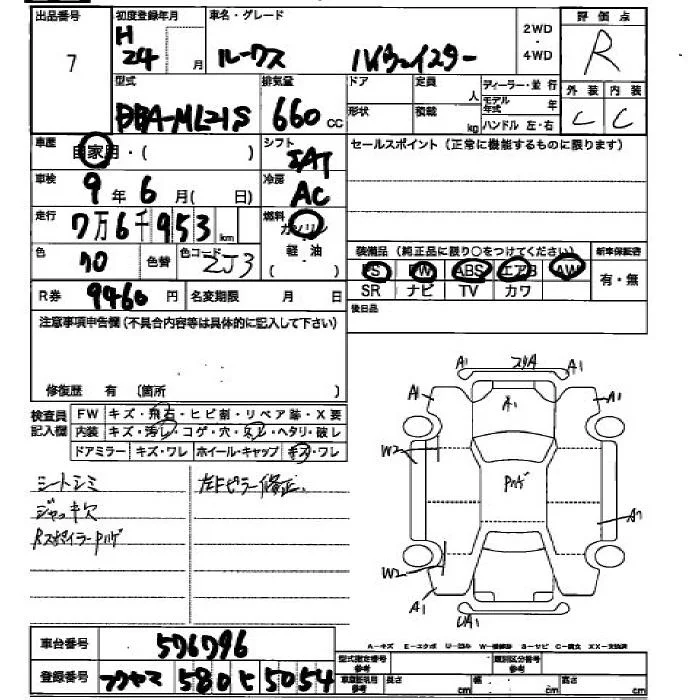 出品番号 7
初度登録年月 H 24 年 月
車名・グレード ルークス ハイウェイスター
2WD ・ 4WD
評価点 R
型式 DBA-ML21S
排気量 660 cc
ドア 定員 人
形状 積載 kg
ディーラー・並行
モデル年式 年
ハンドル 左・右
外装 C 内装 C
車歴 自家用・( )
シフト IAT
セールスポイント (正常に機能するものに限ります)
車検 9年6月( 日)
冷房 AC
走行 7万6千953 km
燃料 ガソリン ・ 軽油 ・( )
色 クロ 色替 色コード ZJ3
装備品 (純正品に限り○をつけてください)
新車保証書 有・無
PS PW ABS エアB AW
SR ナビ TV カワ
R券 9460 円 名変期限 月 日
後日品
注意事項申告欄(不具合内容等は具体的に記入して下さい)
修復歴 有 (箇所 )
検査員記入欄
FW キズ・飛石・ヒビ割・リペア跡・X要
内装 キズ・汚レ・コゲ・穴・スレ・ヘタリ・破レ
ドアミラー キズ・ワレ ホイール・キャップ キズ・ワレ
シートシミ
ジャッキ欠
Rスポイラーハゲ
左Fピラー修正
A1 A1
A1 A1 A1
W2
ハゲ
A1
W2
A1 UA1
A-キズ E-エクボ U-凹ミ W-補修跡 S-サビ C-腐食 XX-交換済
車台番号 576796
登録番号 フクヤマ 580 ヒ 5054
型式指定番号 参考 類別区分番号 参考
車庫証明用 参考 長さ cm 幅 cm 高さ cm